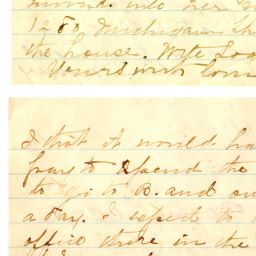 moved into her
1280, Michigan
the house. Write Soo
Yours with love
I that it would ha
to spend the
to go to B. and
a day. I used to
office there in the